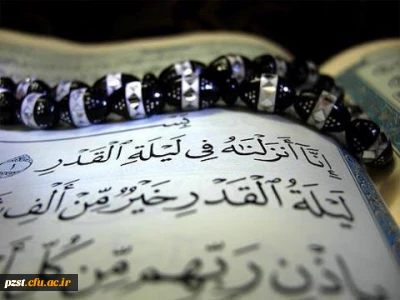 إِنَّآ أَنزَلْنَٰهُ فِى لَيْلَةِ ٱلْقَدْرِ ١
لَيْلَةُ ٱلْقَدْرِ خَيْرٌ مِّنْ أَلْفِ
بِإِذْنِ رَبِّهِم مِّن كُلِّ
pzst.cfu.ac.ir